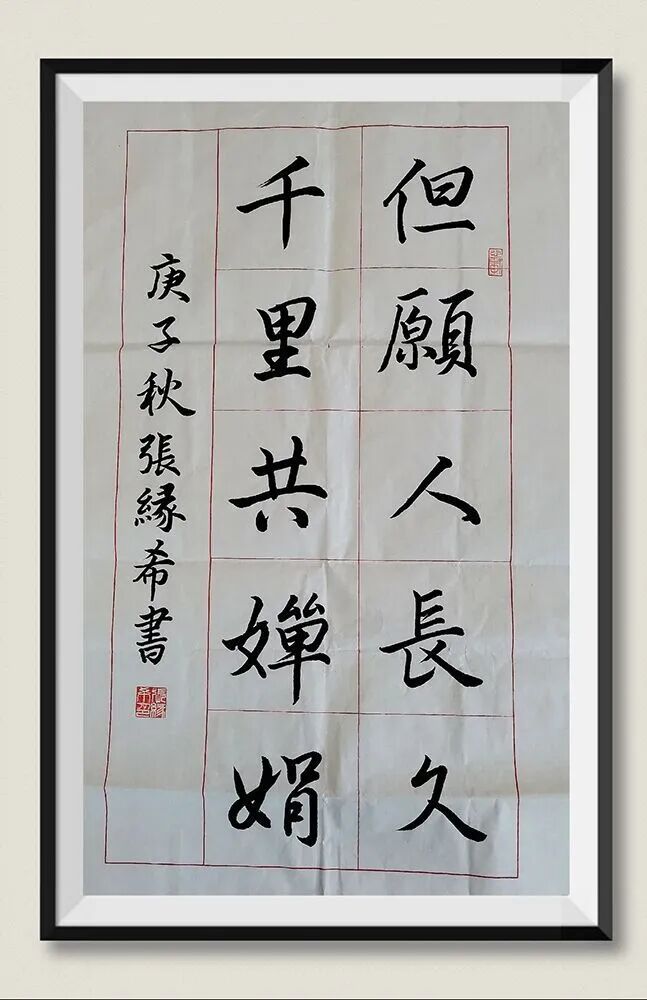 但願人長久
千里共嬋娟
庚子秋張緣希書